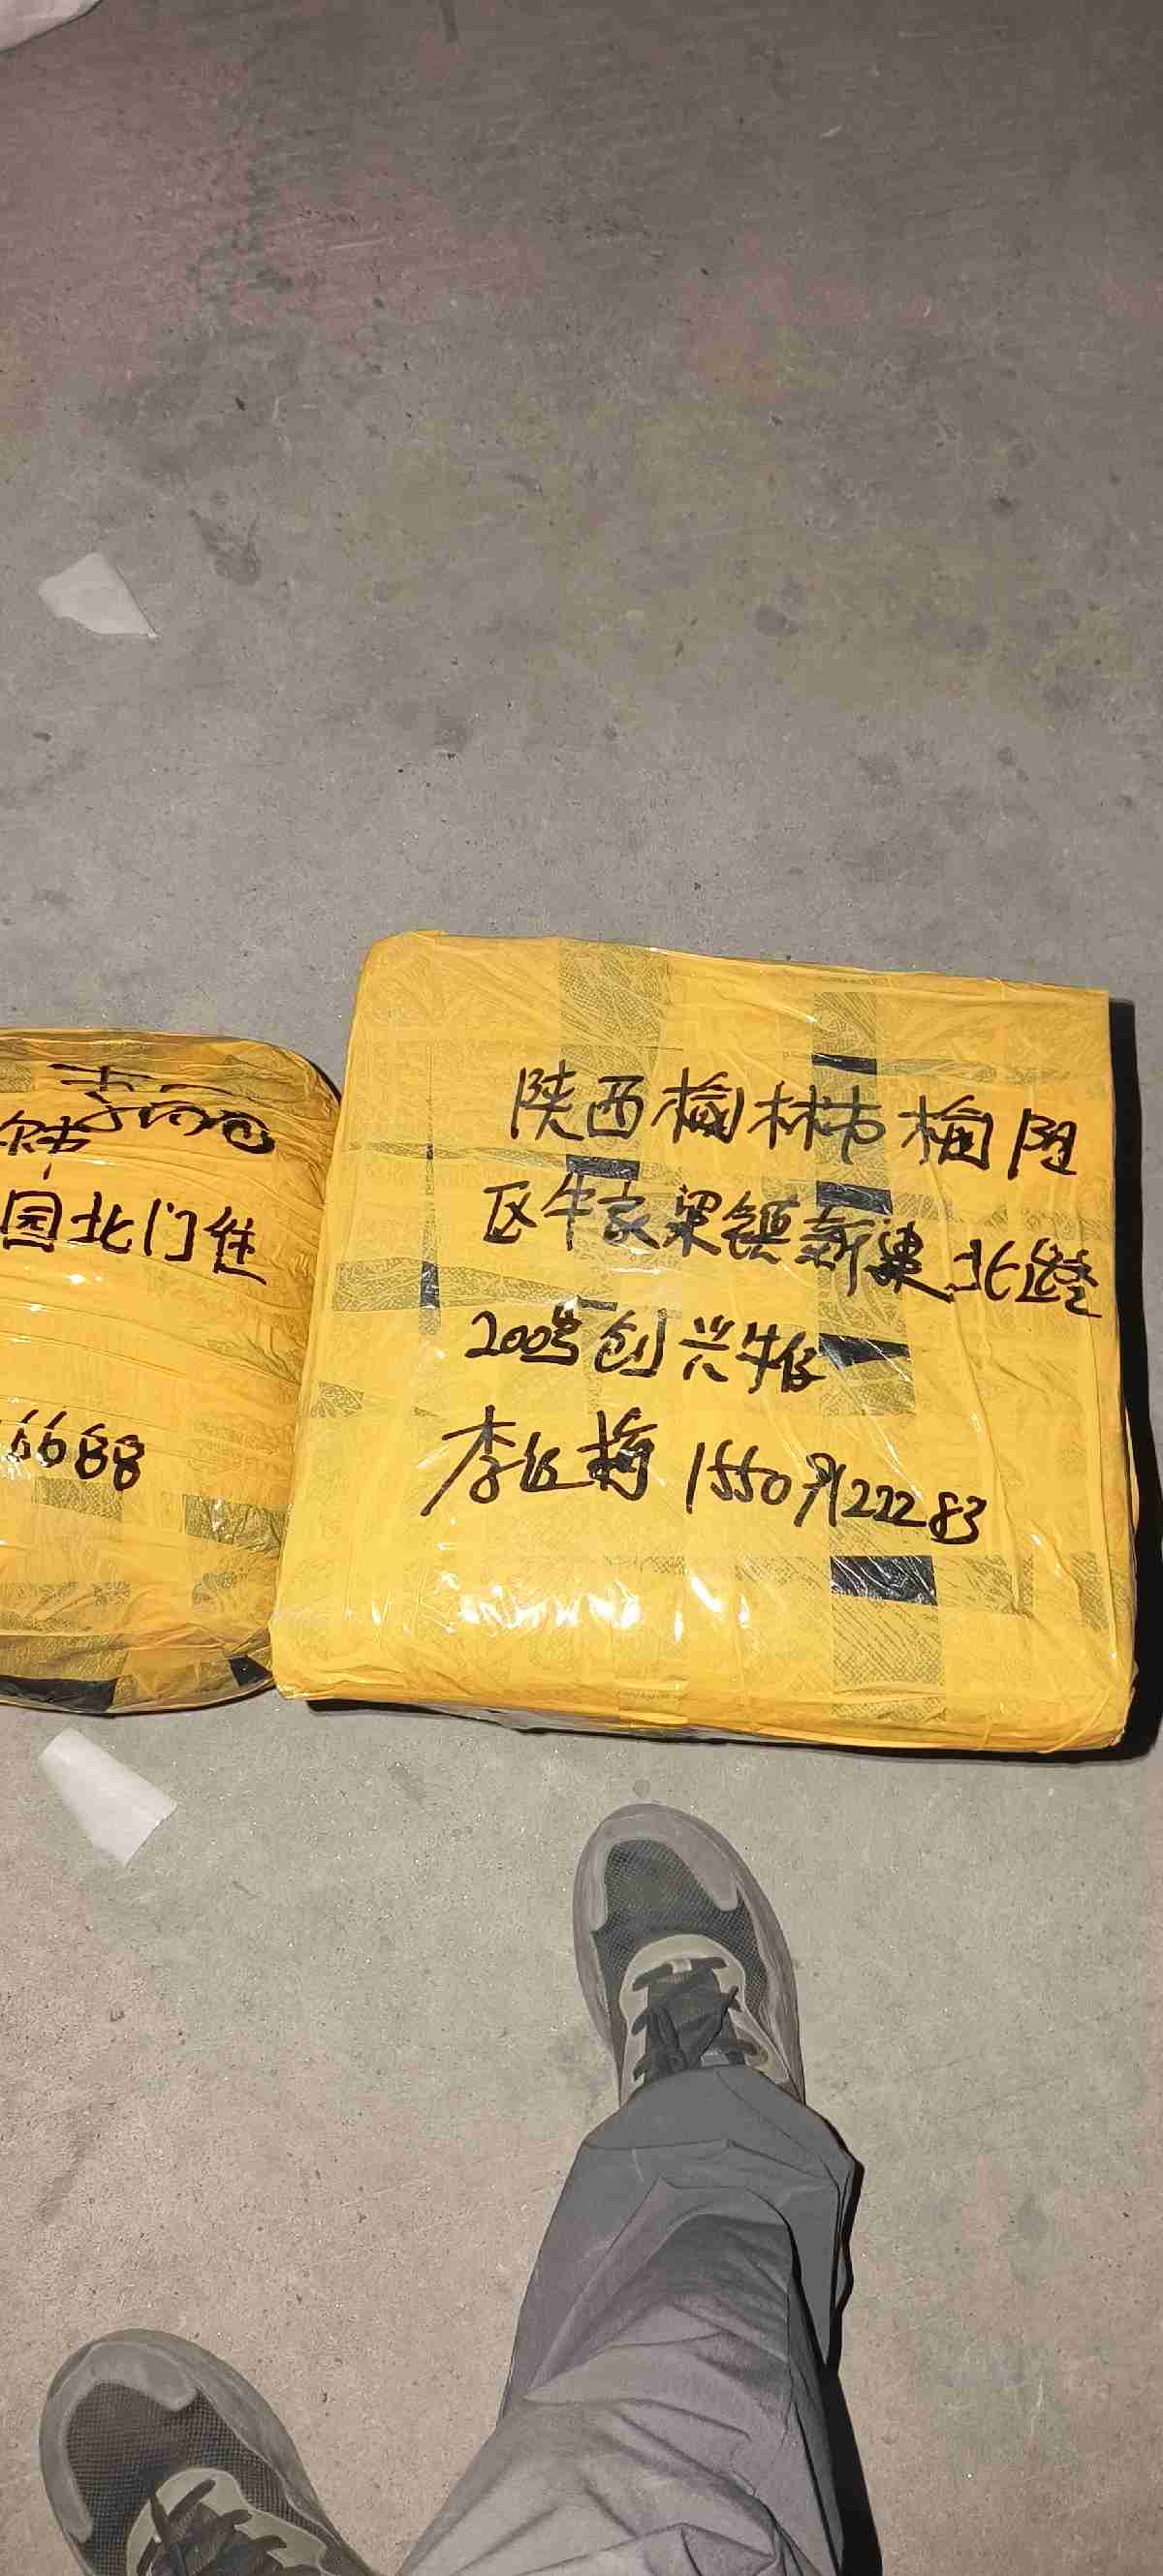 园北门往
6688
陕西榆林市榆阳
区牛家梁镇新寨北路
200号创兴牛仔
李 梅 155 222283